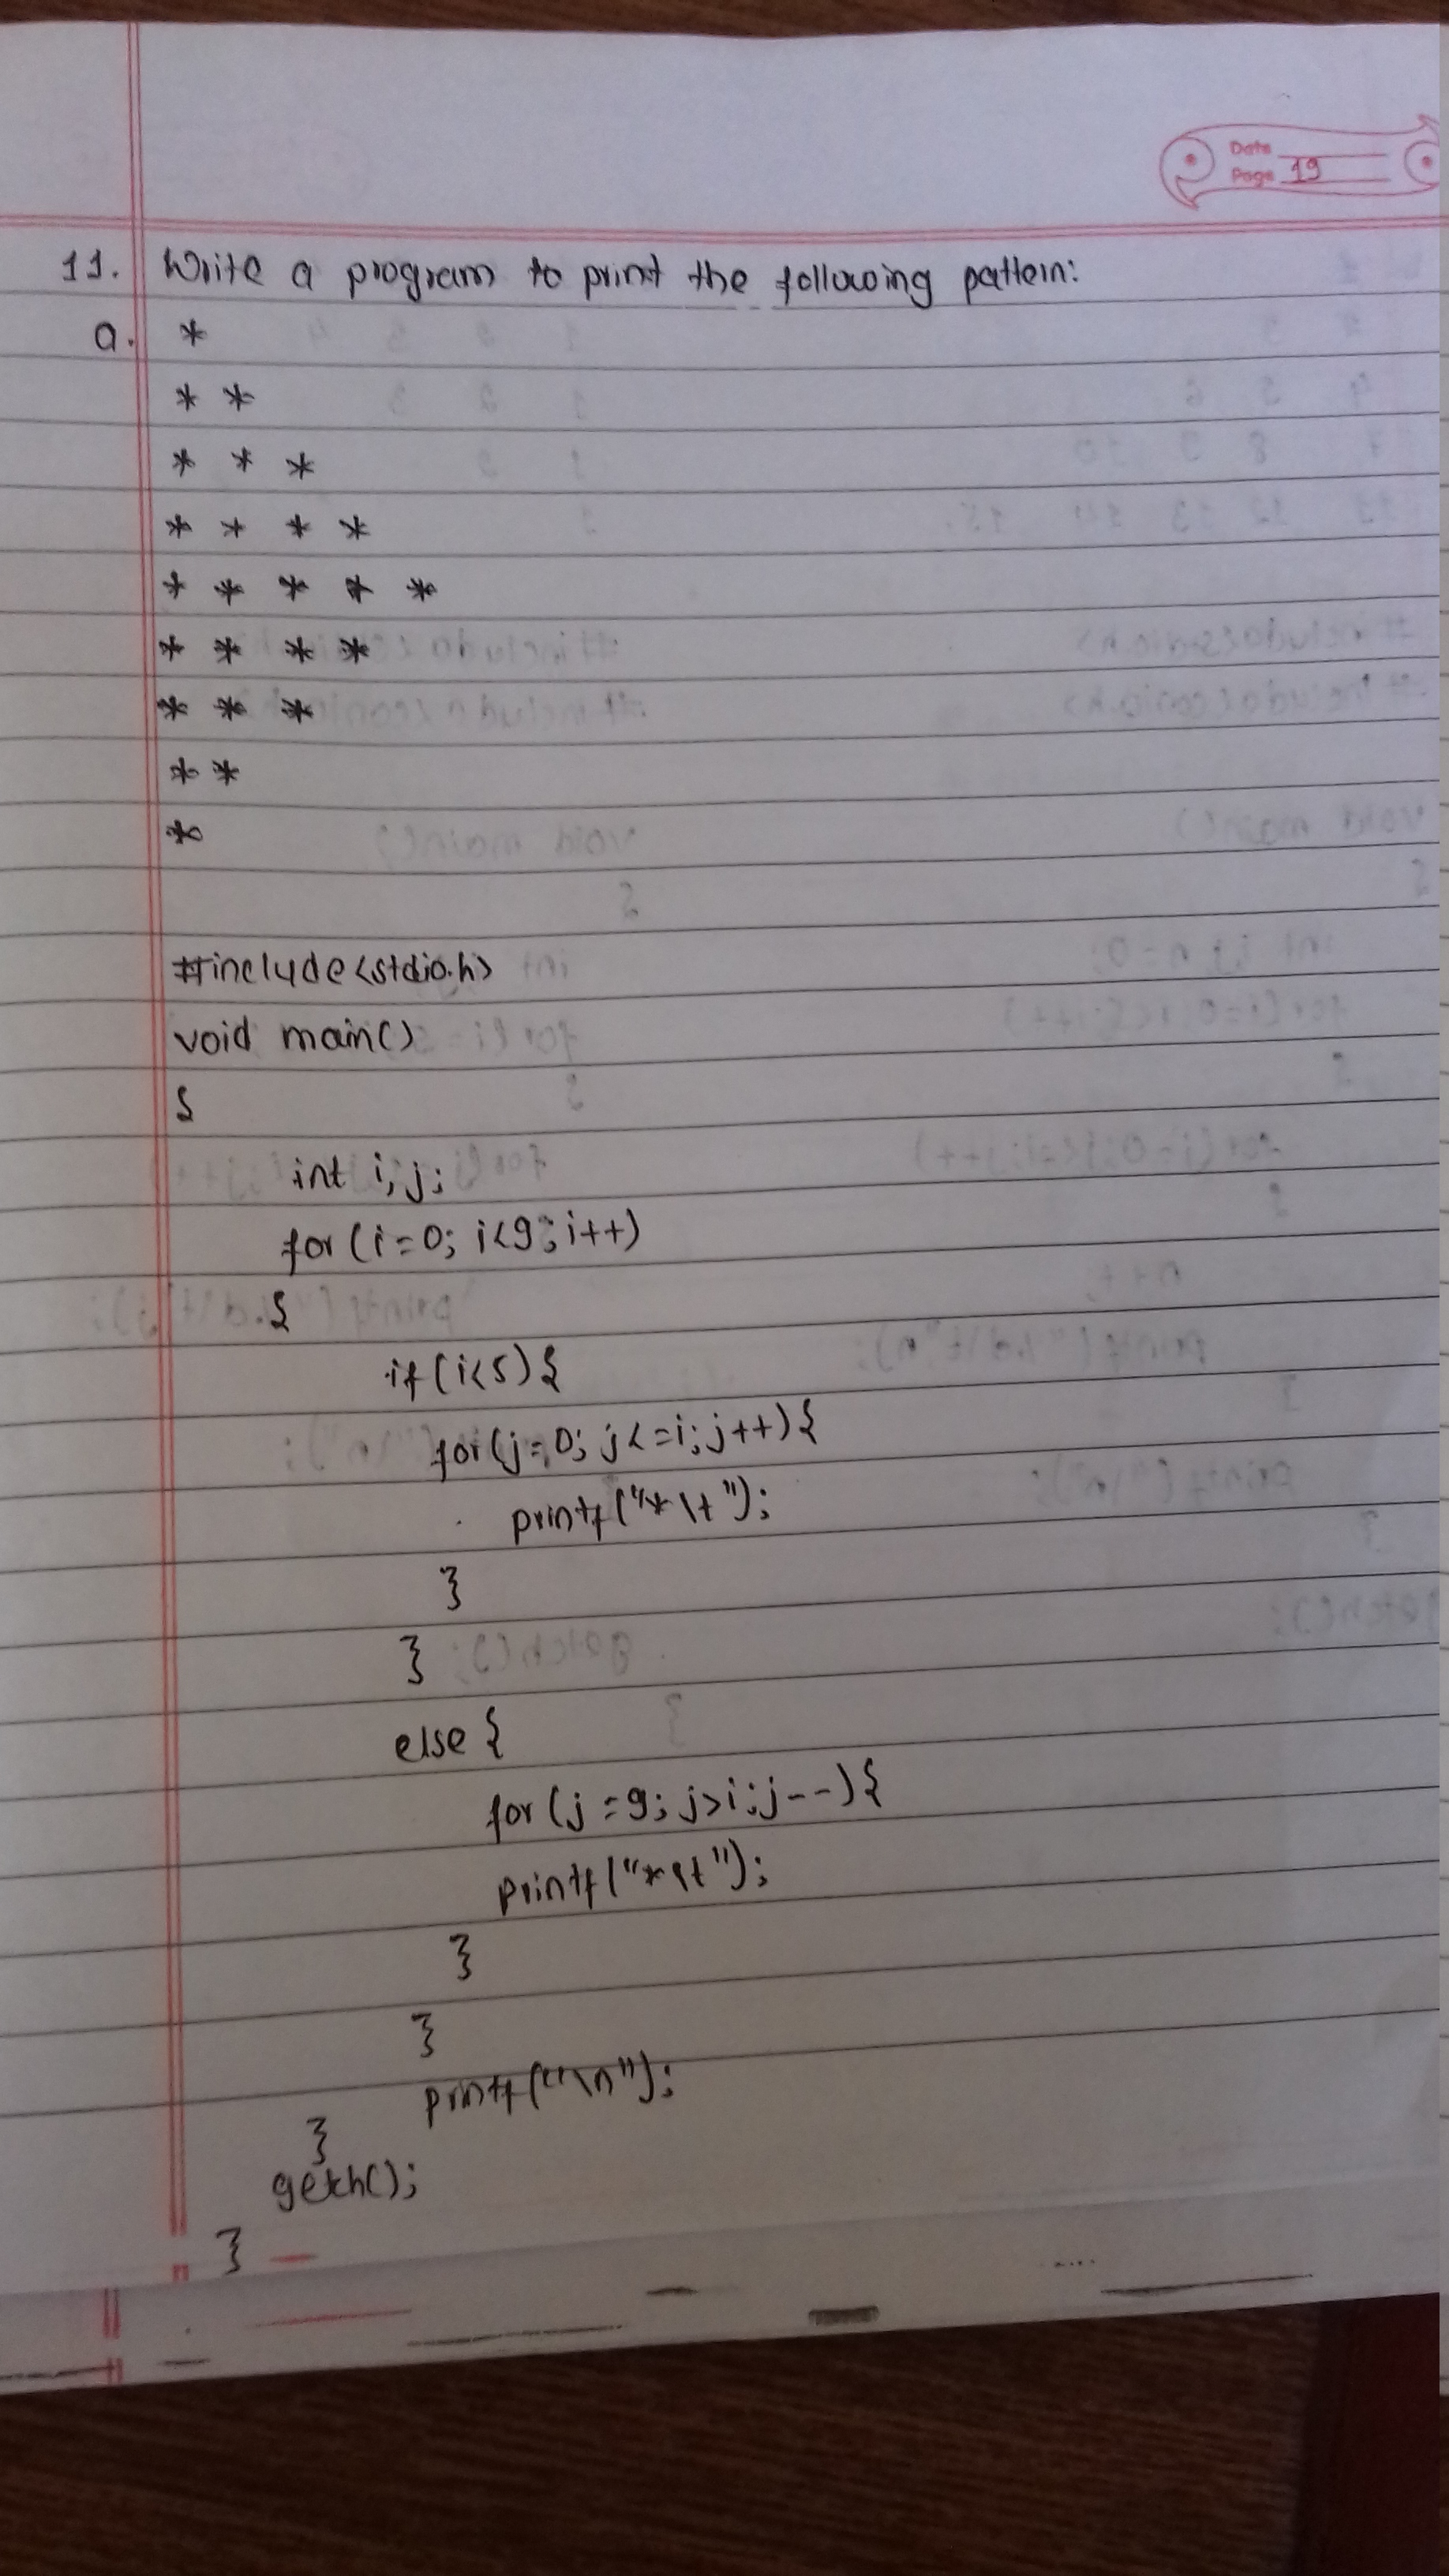 Date
Page 19
11. Write a program to print the following pattern:
a. *
* *
* * *
* * * *
* * * * *
* * * *
* * *
* *
*
#include<stdio.h>
void main()
{
int i,j;
for(i=0; i<9; i++)
{
if(i<5){
for(j=0; j<=i; j++){
printf("*\t");
}
}
else {
for(j=9; j>i; j--){
printf("*\t");
}
}
printf("\n");
}
getch();
}